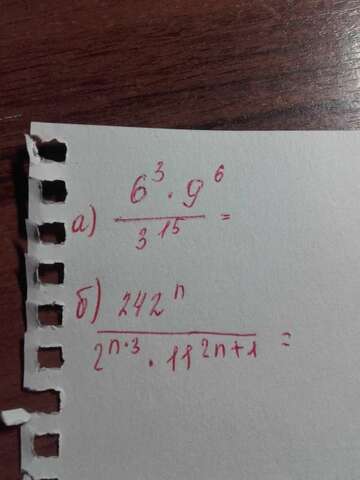 а) 6³·9⁶ / 3¹⁵ =
б) 242ⁿ / 2ⁿ·³ · 11²ⁿ⁺¹ =